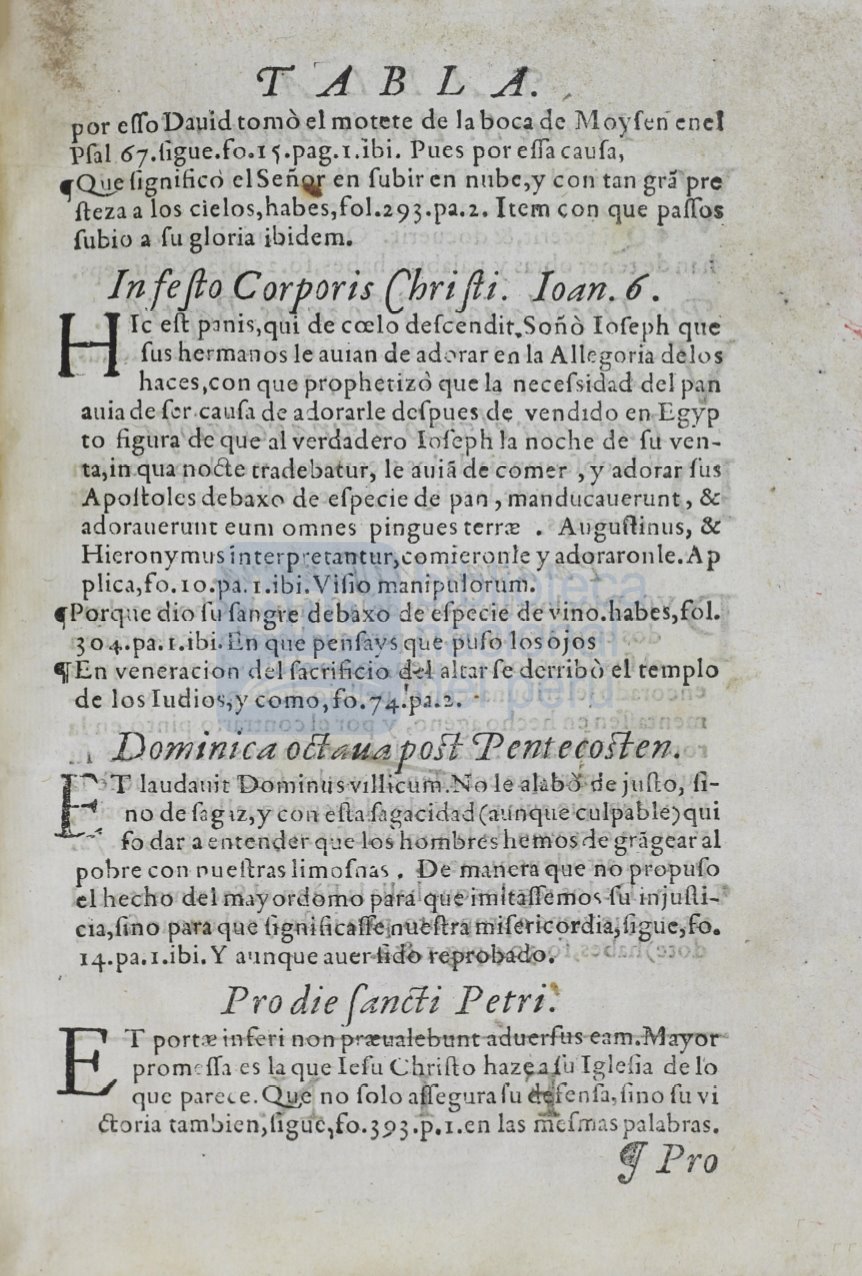 TABLA.
por eſſo Dauid tomò el motete de la boca de Moyſen enel
Pſal 67.ſigue.fo.15.pag.1.ibi. Pues por eſſa cauſa,
¶Que ſignificò el Señor en ſubir en nube,y con tan grã pre
ſteza a los cielos,habes,fol.293.pa.2. Item con que paſſos
ſubio a ſu gloria ibidem.
In feſto Corporis Chriſti. Ioan. 6.
HIc eſt panis,qui de cœlo deſcendit.Soñò Ioſeph que
ſus hermanos le auian de adorar en la Allegoria delos
haces,con que prophetizò que la neceſsidad del pan
auia de ſer cauſa de adorarle deſpues de vendido en Egyp
to figura de que al verdadero Ioſeph la noche de ſu ven-
ta,in qua nocte tradebatur, le auiã de comer , y adorar ſus
Apoſtoles debaxo de eſpecie de pan , manducauerunt , &
adorauerunt eum omnes pingues terræ . Auguſtinus, &
Hieronymus interpretantur,comieronle y adoraronle.Ap
plica,fo.10.pa.1.ibi.Viſio manipulorum.
¶Porque dio ſu ſangre debaxo de eſpecie de vino.habes,fol.
304.pa.1.ibi.En que penſays que puſo los ojos
¶En veneracion del ſacrificio del altar ſe derribò el templo
de los Iudios,y como,fo.74.pa.2.
Dominica octaua poſt Pentecoſten.
ET laudauit Dominus villicum.No le alabò de juſto, ſi-
no de ſagaz,y con eſta ſagacidad(aunque culpable)qui
ſo dar a entender que los hombres hemos de grãgear al
pobre con nueſtras limoſnas . De manera que no propuſo
el hecho del mayordomo para que imitaſſemos ſu injuſti-
cia,ſino para que ſignificaſſe nueſtra miſericordia,ſigue,fo.
14.pa.1.ibi.Y aunque auer ſido reprobado.
Pro die ſancti Petri.
ET portæ inferi non præualebunt aduerſus eam.Mayor
promeſſa es la que Ieſu Chriſto haze a ſu Igleſia de lo
que parece.Que no ſolo aſſegura ſu defenſa,ſino ſu vi
ctoria tambien,ſigue,fo.393.p.1.en las meſmas palabras.
¶ Pro